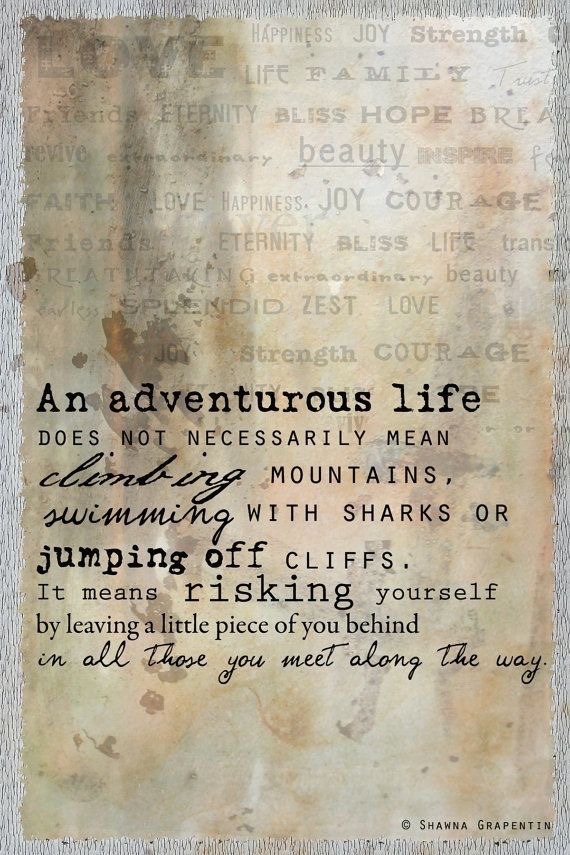 LOVE HAPPINESS JOY Strength C
LIFE FAMILY Trust
Friends ETERNITY BLISS HOPE BREA
revive extraordinary beauty INSPIRE fe
FAITH LOVE HAPPINESS JOY COURAGE
Friends ETERNITY BLISS LIFE trans
BREATHTAKING extraordinary beauty
fearless SPLENDID ZEST LOVE
JOY Strength COURAGE
An adventurous life
DOES NOT NECESSARILY MEAN
climbing MOUNTAINS,
swimming WITH SHARKS OR
jumping off CLIFFS.
It means risking yourself
by leaving a little piece of you behind
in all those you meet along the way.
© SHAWNA GRAPENTIN